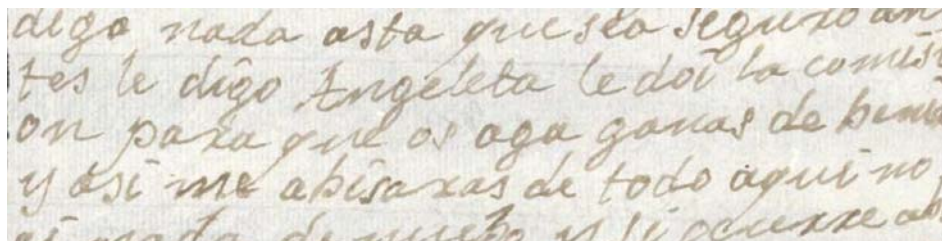 digo nada asta que sea seguro an
tes le digo Angeleta le doi la comisi
on para que os aga ganas de benir
y asi me abisaras de todo aqui no
nada de nuebo y si ocurre